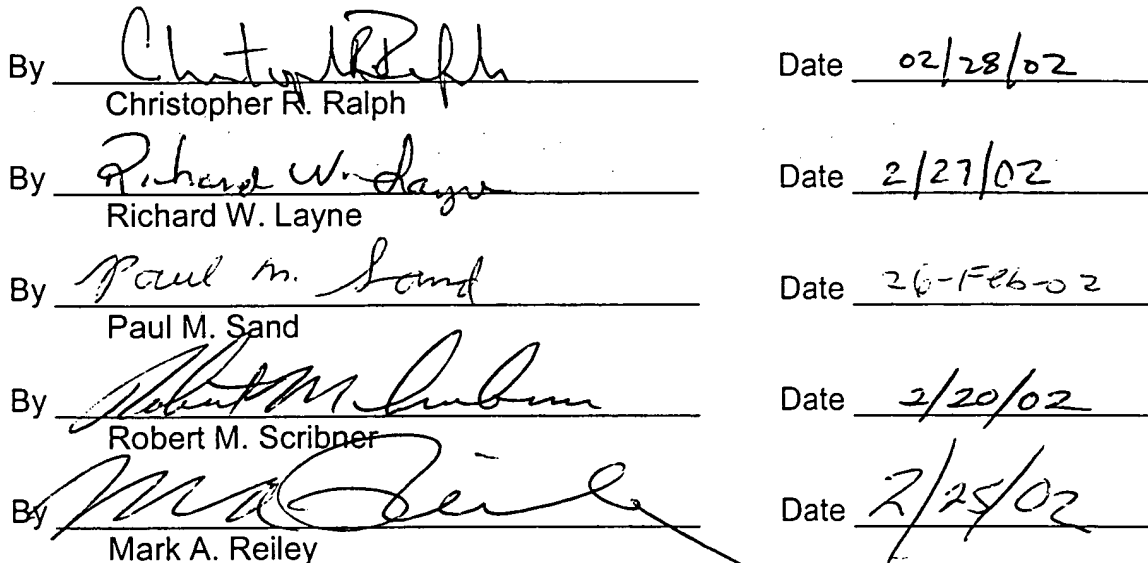 By Christopher R. Ralph Date 02/28/02
Christopher R. Ralph
By Richard W. Layne Date 2/27/02
Richard W. Layne
By Paul M. Sand Date 26-Feb-02
Paul M. Sand
By Robert M. Scribner Date 2/20/02
Robert M. Scribner
By M A Reiley Date 2/25/02
Mark A. Reiley